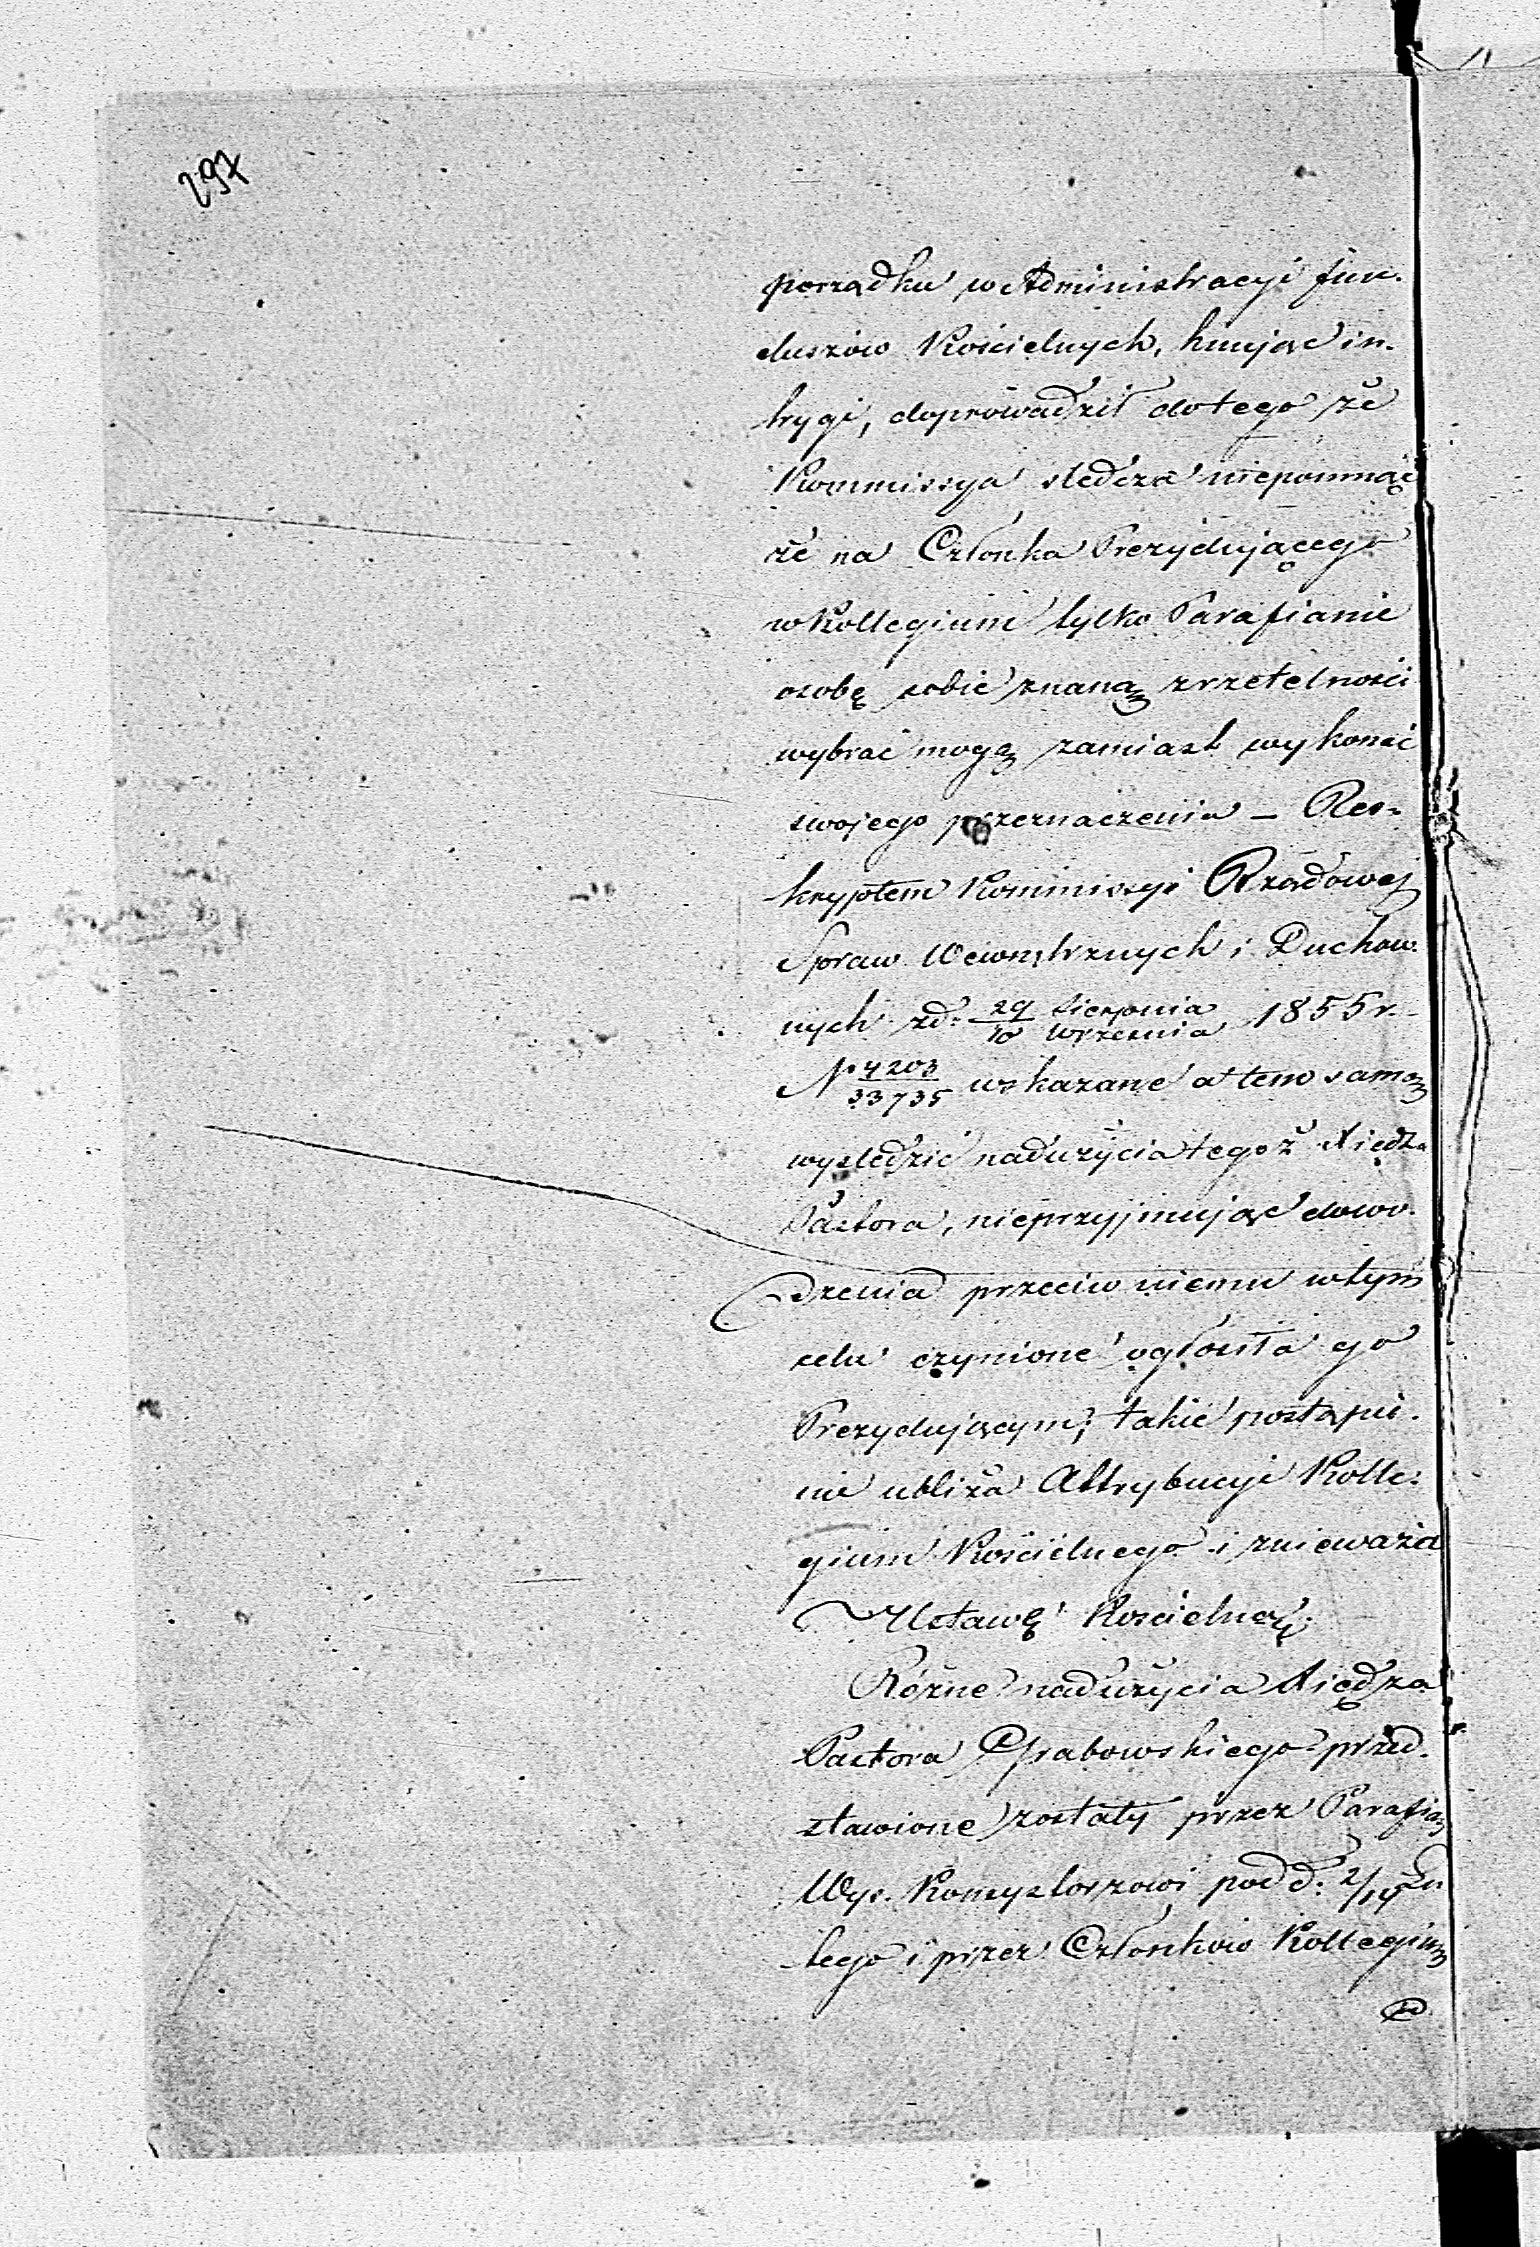 297
porządku w Administracyi fun-
duszów Kościelnych, knując in-
trygi, doprowadził do tego że
Kommissya śledcza niepomnąc
że na Członka Prezydującego
w Kollegium tylko Parafianie
osobę sobie znaną z rzetelności
wybrać mogą zamiast wykonać
swojego przeznaczenia – Res-
kryptem Kommissyi Rządowej
Spraw Wewnętrznych i Duchow-
nych zd: 29/10 Sierpnia/Września 1855 r.
N 4203/33735 wskazane a temsamą
wyśledzić nadużycia tegoż Xiędza
Pastora, nieprzyjmując dowo-
dzenia przeciw niemu w tym
celu czynione ogłosiła go
Prezydującym; takie postąpie-
nie ubliża Attrybucyi Kolle-
gium Kościelnego i znieważa
Ustawę Kościelną.
Różne nadużycia Xiędza
Pastora Grabowskiego przed-
stawione zostały przez Parafią
Wys. Konsystorzowi pod d. 2/14
tego i przez Członków Kollegium